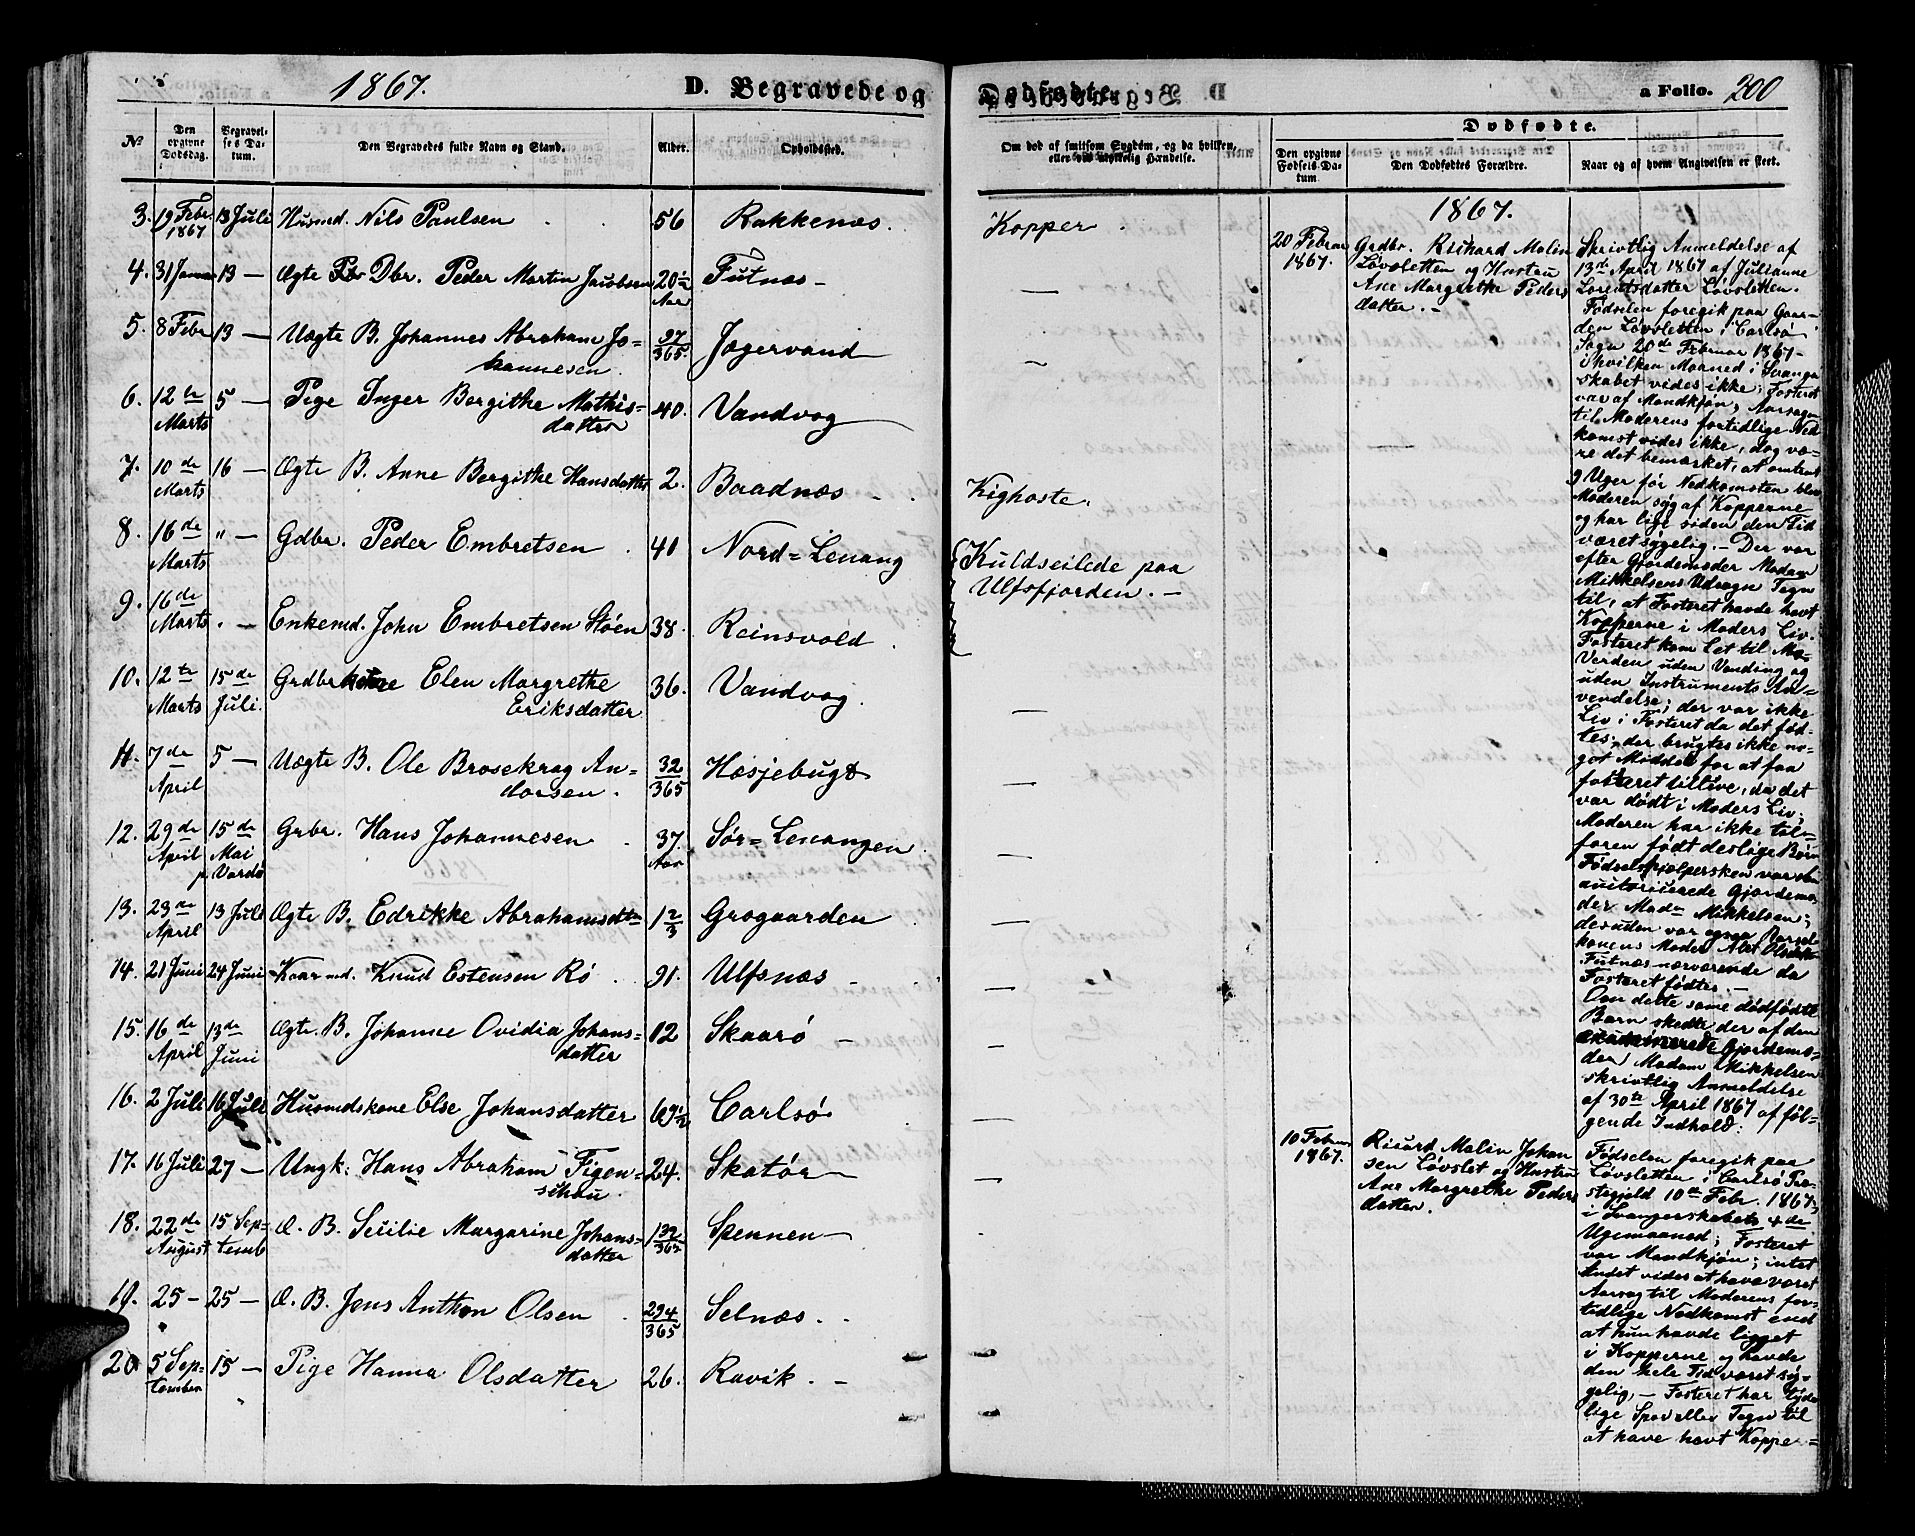 1867.
D. Begravede og
Dødfødte
a Folio. 200
№
Den opgivne Dødsdag.
Begravelses Datum.
Den Begravedes fulde Navn og Stand.
Alder.
Opholdssted.
Om død af smitsom Sygdom, og da hvilken, eller ved ulykkelig Hændelse.
Dødfødte.
Den opgivne Fødsels Datum
Den Dødfødtes Forældre.
Naar og af hvem Angivelsen er skeet.
3. 19 Febr. 1867 13 Juli Husmd. Nils Paulsen 56 Rakkenæs. Kopper.
4. 31 Januar 13 — Ægte Dbr. Peder Martin Jacobsen 20 1/2 Aar Futnæs — —
5. 8 Febr 13 — Uægte B. Johannes Abraham Jo=
hannesen. 37/365 Jægervand —
6. 12te Marts 5 — Pige Inger Bergithe Mathis=
datter 40. Vandvag
7. 10de Marts 16 — Ægte B. Anne Bergithe Hansdatter 2. Baadnæs Kighoste.
8. 16de Marts " — Gdbr. Peder Embretsen 41 Nord=Lenang Kuldseilede paa
Ulfsfjorden. —
9. 16de Marts " — Enkemd. John Embretsen Støen 38. Reinsvold
10. 12te Marts 15de Juli. Grdbrkone Elen Margrethe
Eriksdatter 36. Vandvag. —
11. 7de April 5 — Uægte B. Ole Brosekrag An=
dorsen. 32/365 Hæsjebugt —
12. 29de April 15de Mai p. Vardø Grbr. Hans Johannesen 37. Aar Sør=Lenangen —
13. 23de April 13 Juli Ægte B. Edrikke Abrahamsdtr 1 2/3 Grøgaarden —
14. 21 Juni 24 Juni Kaarmd. Knud Estensen Rø 91. Ulfsnæs —
15. 16de April 13de Juni Ægte. B. Johanne Ovidia Johans=
datter 12 Skaarø — —
16. 2 Juli 16 Juli Husmdskone Else Johansdatter 69 1/2 Carlsø —
17. 16 Juli 27 — Ungk: Hans Abraham Figen=
schau 24. Skatør —
18. 22de August 15 Septemb Æ. B. Secilie Margarine Johans=
datter Spennen —
19. 25 — 25 — Æ. B. Jens Anthon Olsen 294/365 Selnæs.
20 5 September 15 — Pige Hanna Olsdatter 26. Ravik. —
1867.
20 Februar 1867.
Grdbr. Richard Malin
Løvsletten og Hustru
Ane Margrethe Peders
datter. —
Skrivtlig Anmeldelse af
13de April 1867 af Julianne
Lorentsdatter Løvsletten.
Fødselen foregik paa Gaar=
den Løvsletten i Carlsø
Sogn 20de Februar 1867 —
i hvilken Maaned i Svanger
skabet vides ikke; Fosteret
var af Mandkjøn; Aarsagen
til Moderens fortidlige Ned
komst vides ikke, dog væ=
re det bemærket, at omtrent
9 Uger før Nedkomsten blev
Moderen syg af Kopperne
og har lige siden den Tid
været sygelig. — Der var
efter Gjordemoder Madam
Mikkelsens Udsagn Tegn
til, at Fosteret havde havt
Kopperne i Moders Liv.
Fosteret kom let til
Verden uden Vending og
uden Instruments An=
vendelse; der var ikke
Liv i Fosteret da det fød=
tes; der brugtes ikke no=
get Middel for at faa
fosteret tillive, da det
var dødt i Moders Liv;
Moderen har ikke til=
foren født deslige Børn
Fødselshjelpersken var den
autoriserede Gjordemo=
der Madm Mikkelsen;
desuden var ogsaa Barsel
konens Moder
Futnæs nærværende da
Fosteret fødtes. —
Om dette same dødfødte
Barn skedte der af den
Gjordemo=
der Madam Mikkelsen
skrivtlig Anmeldelse
af 30te April 1867 af føl=
gende Indhold:
10 Februar 1867.
Risard Malin Johan
sen Løvslet og Hustru
Ane Margrethe Peders
datter.
Fødselen foregik paa
Løvsletten i Carlsø Præ=
stegjeld 10de Febr. 1867,
i Svangerskabets 4de
Ugemaaned; Fosteret
var Mandkjøn; intet
Andet vides at have været
Aarsag til Moderens for=
tidlige Nedkomst end
at hun havde ligget
i Kopperne og havde
den hele Tid været sy=
gelig, — Fosteret har tyde
lige Spor eller Tegn til
at have havt Kopper=